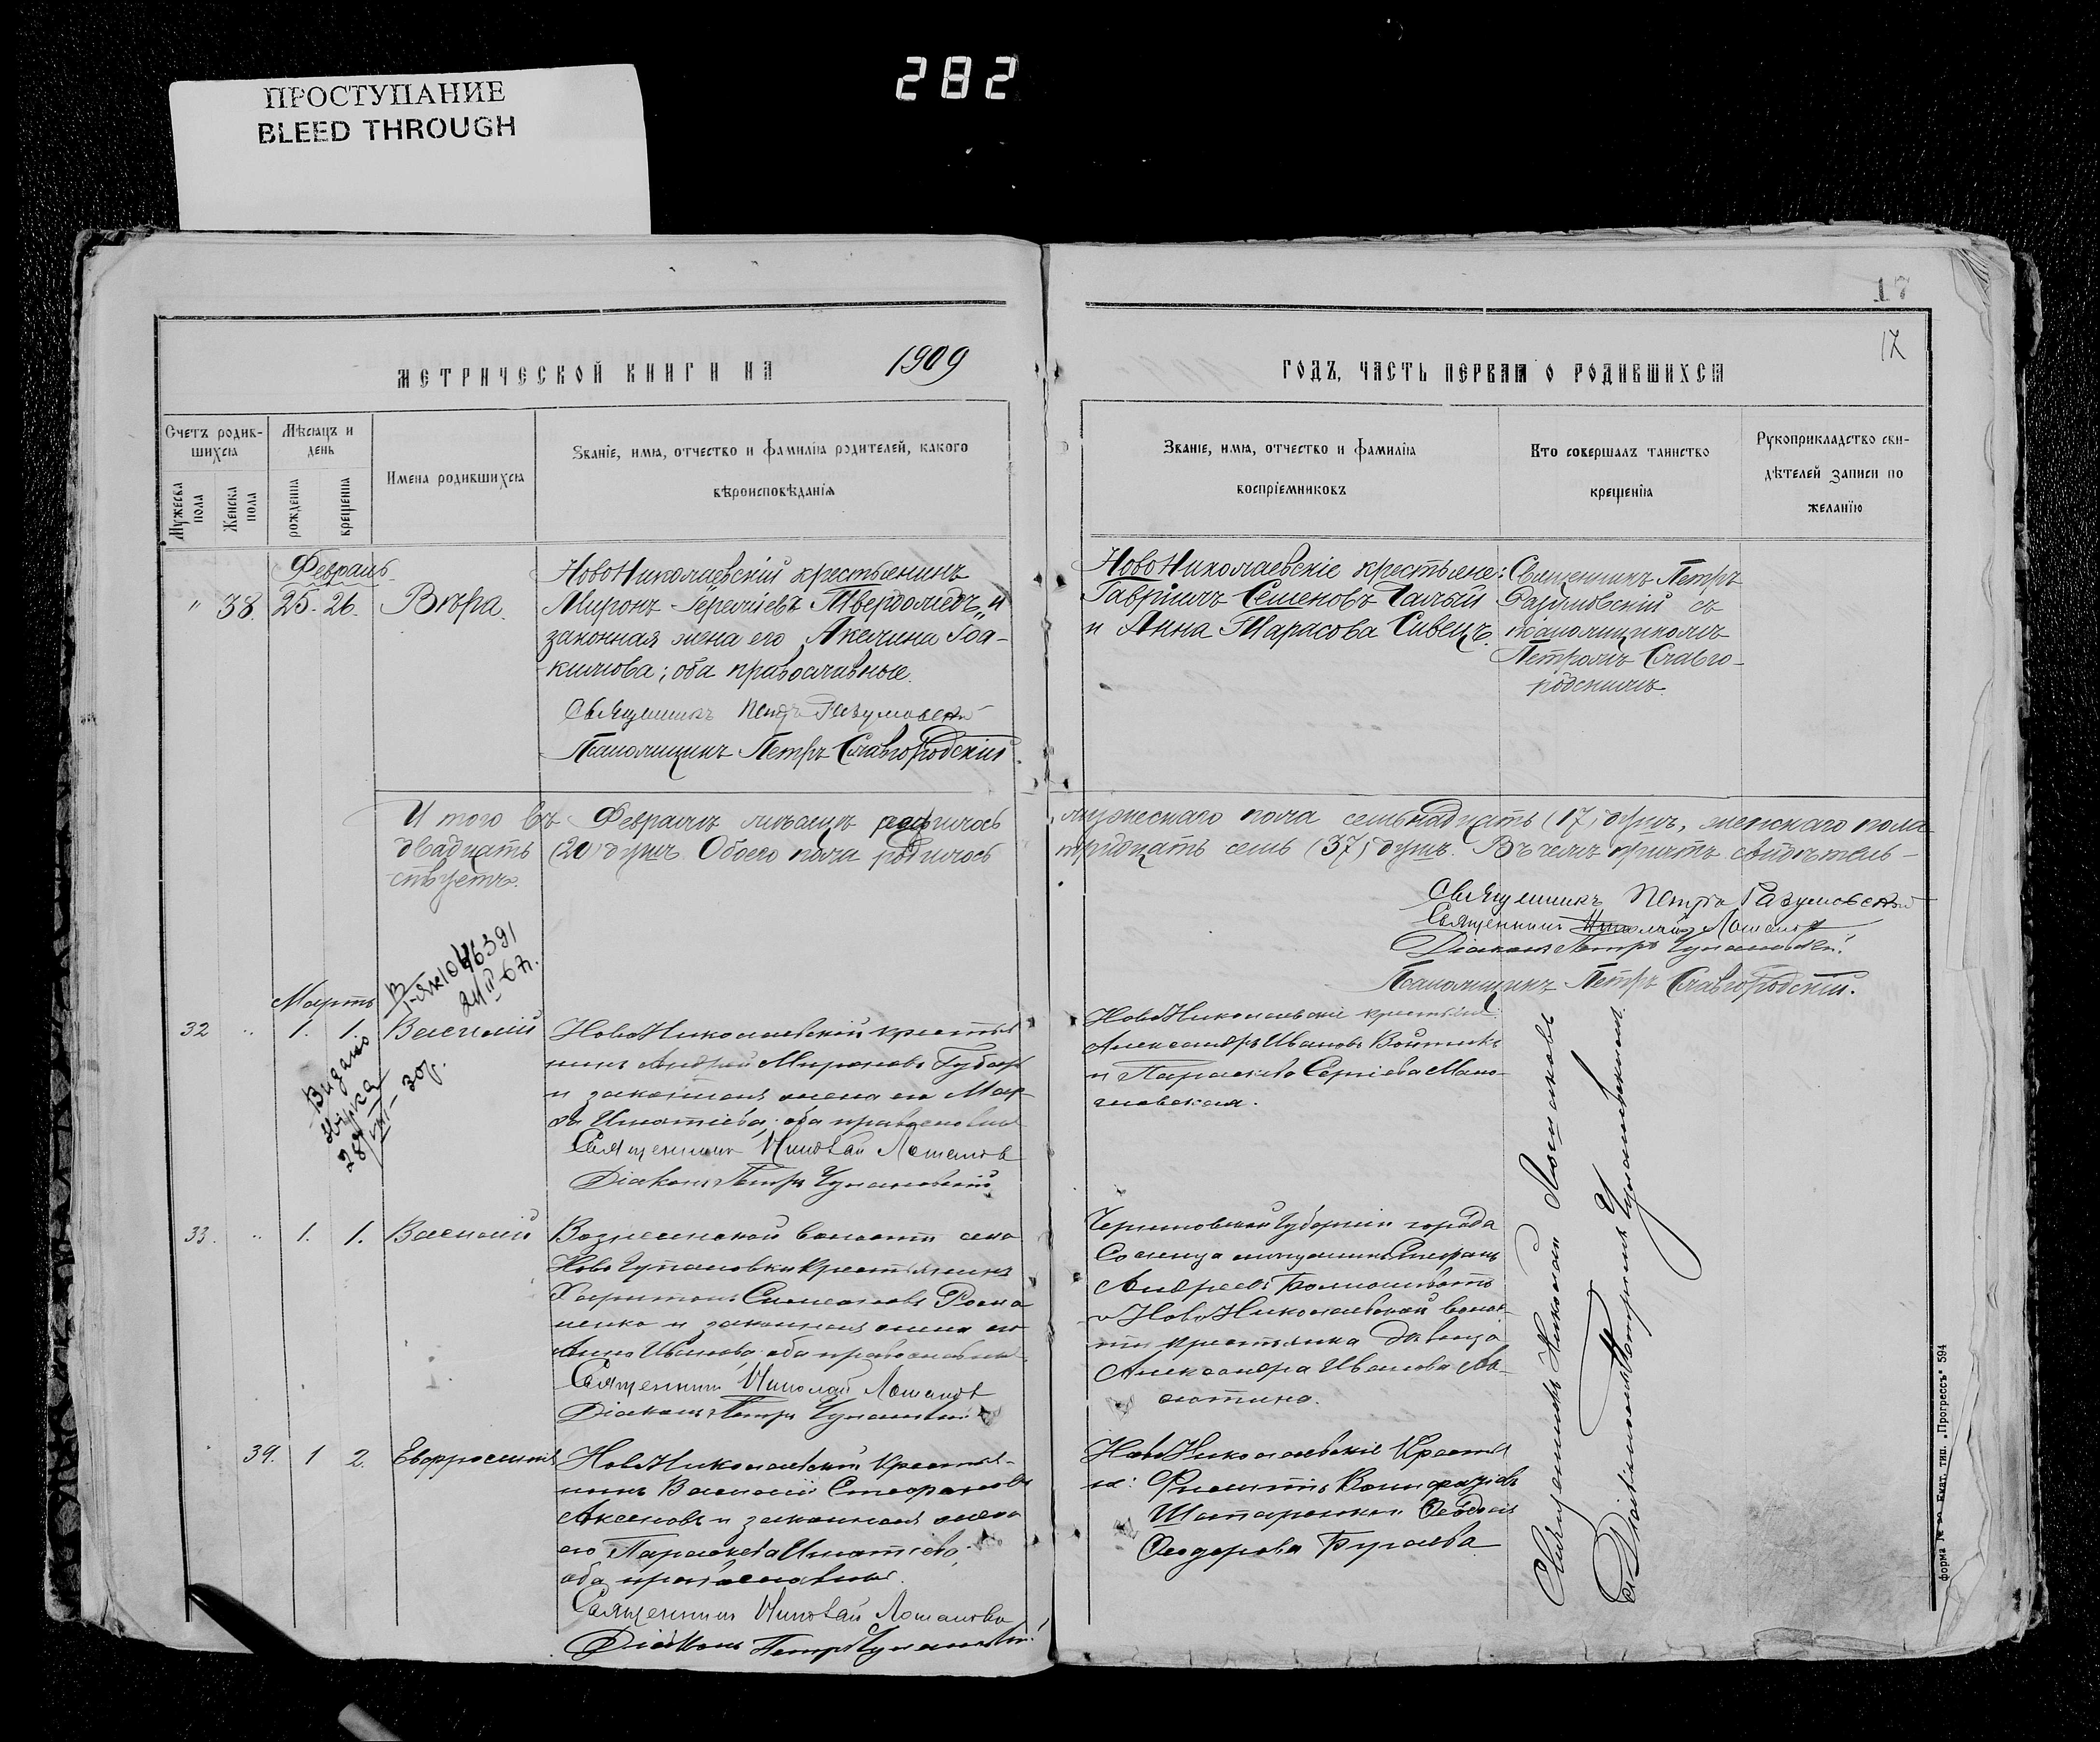 282
ПРОСТУПАНИЕ
BLEED THROUGH
17
17
МЕТРИЧЕСКОЙ КНИГИ НА 1909
ГОДЪ, ЧАСТЬ ПЕРВАЯ О РОДИВШИХСЯ
Счетъ родив-
шихся
Мужеска пола
Женска пола
Мѣсяцъ и
день
рожденія
крещенія
Имена родившихся
Званіе, имя, отчество и фамилія родителей, какого
вѣроисповѣданія
Званіе, имя, отчество и фамилія
воспріемниковъ
Кто совершалъ таинство
крещенія
Рукоприкладство сви-
дѣтелей записи по
желанію
Февраль
" 38. 25. 26. Вѣра.
НовоНиколаевскій крестьянинъ
Миронъ Твердомедъ и
законная жена его Акелина Іоа-
кимова; оба православные.
Священникъ Петръ Разумовскій
Псаломщикъ Петръ Славгородскій
НовоНиколаевскіе крестьяне:
Гавріилъ Семеновъ Галый
и Анна Тарасова Сивецъ.
Священникъ Петръ
Разумовскій съ
псаломщикомъ
Петромъ Славго-
родскимъ.
И того въ Февралѣ мѣсяцѣ родилось
мужескаго пола семьнадцать (17) душъ, женскаго пола
двадцать (20) душъ. Обоего пола родилось
тридцать семь (37) душъ. Въ чемъ причтъ свидѣтель-
ствуетъ.
Священникъ Петръ Разумовскій
Священникъ Николай Лошаковъ
Діаконъ Петръ
Псаломщикъ Петръ Славгородскій.
1046391
67г.
Мартъ
32 .. 1. 1. Василій
Видано
28 VII – 30р.
НовоНиколаевскій крестья
нинъ Андрей Мироновъ Губарь
и законная жена его Мар-
ѳа Игнатіева; оба православные
Священникъ Николай Лошаковъ
Діаконъ Петръ
НовоНиколаевскіе крестьяне:
Александръ Ивановъ Войтикъ
и Параскева Сергіева Мано-
иловская.
33. .. 1. 1. Василій
Вознесенской волости села
Ново Гупаловки крестьянинъ
Харитонъ Симеоновъ Рома
ненко и законная жена его
Анна Иванова; оба православные
Священникъ Николай Лошаковъ
Діаконъ Петръ
Черниговской губерніи города
Сосница мѣщанинъ Стефанъ
Андреевъ
и НовоНиколаевской волос-
ти крестьянка дѣвица
Александра Иванова
39. 1 2. Евфросинія
НовоНиколаевскій крестья-
нинъ Василій Стефановъ
Аксеновъ и законная жена
его Параскева Игнатіева;
оба православные.
Священникъ Николай Лошаковъ
Діаконъ Петръ
НовоНиколаевскіе крестья
не: Филиппъ Вонифатіевъ
Шапаренко и Ѳеодосія
Ѳеодорова Бугаева
Священникъ Николай Лошаковъ
съ Діакономъ Петромъ
форма № тип. „Прогрессъ" 594